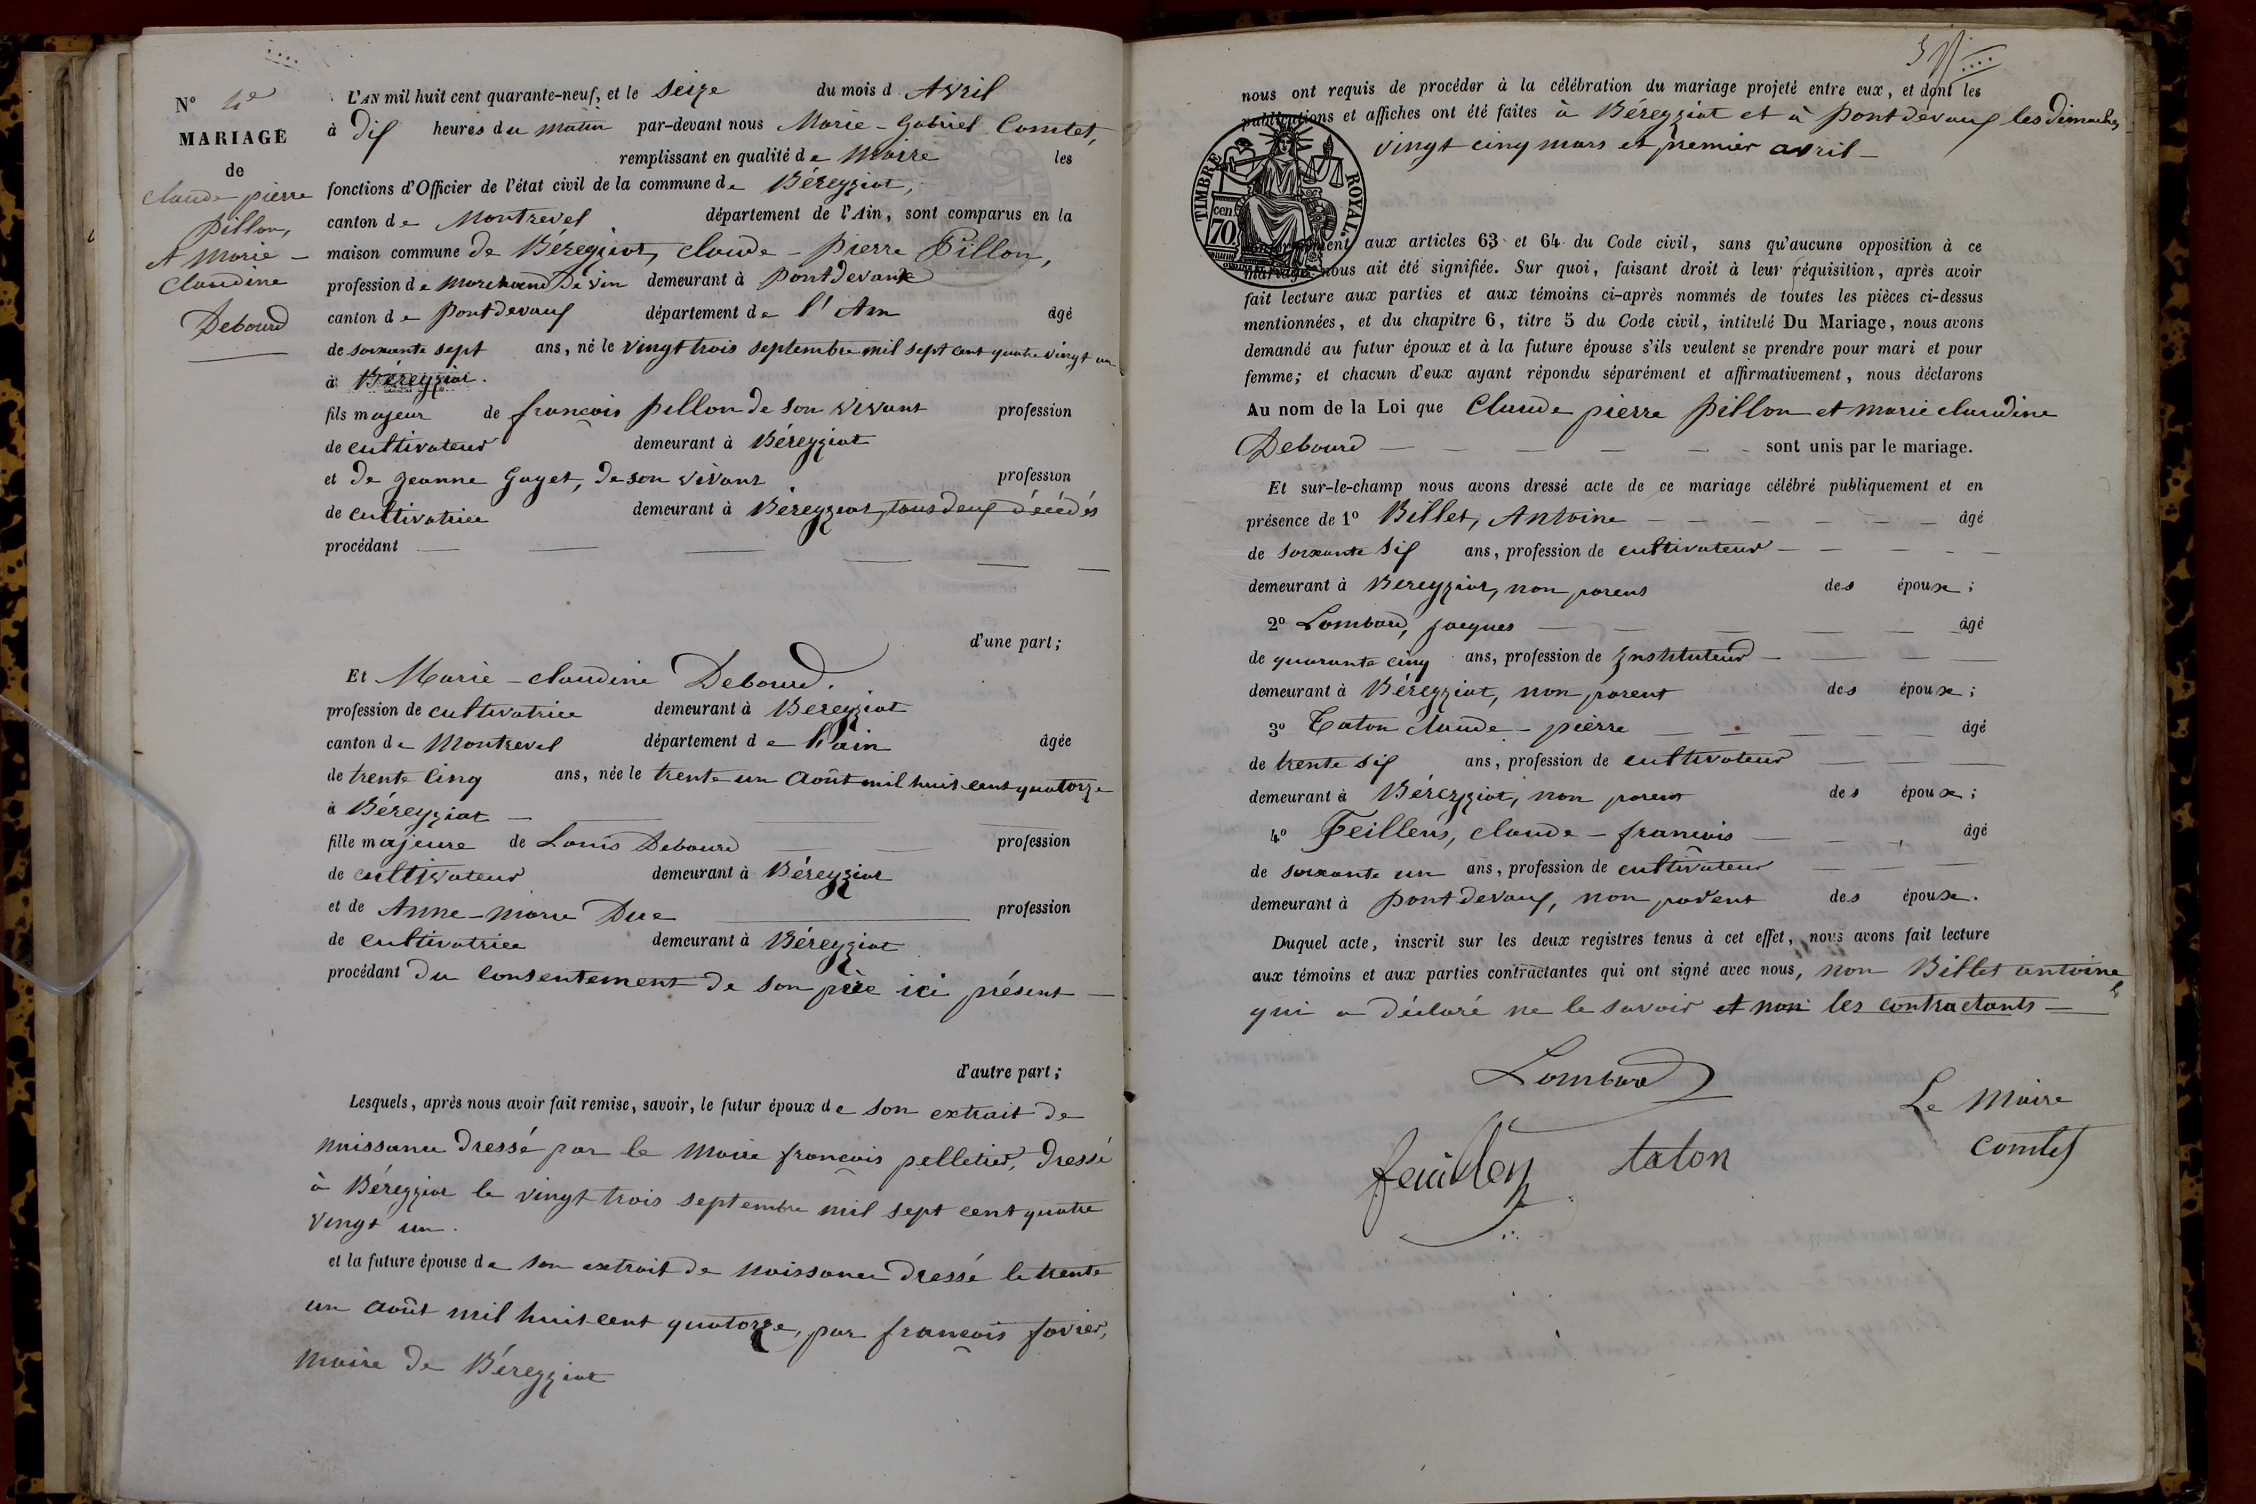 N° 4e
MARIAGE
de
Claude pierre
Pillon,
A Marie –
Claudine
Debourd
L'AN mil huit cent quarante-neuf, et le Seize du mois d Avril
à dix heures du matin par-devant nous Marie – Gabriel Comtet,
remplissant en qualité de Maire les
fonctions d'Officier de l'état civil de la commune de Béreyziat,
canton de Montrevel département de l'Ain, sont comparus en la
maison commune de Béreyziat, Claude – Pierre Pillon,
profession de marchand De vin demeurant à pontdevaux
canton de pontdevaux département de l'Ain âgé
de soixante sept ans, né le vingt trois septembre mil sept cent quatre vingt un
à Béreyziat.
fils majeur de françois pillon de son vivant profession
de cultivateur demeurant à Béreyziat
et de jeanne Gayet, de son vivant profession
de cultivatrice demeurant à Béreyziat, tous deux décédés
procédant —
d'une part;
Et Marie – claudine Debourd.
profession de cultivatrice demeurant à Béreyziat
canton de Montrevel département de l'ain âgée
de trente cinq ans, née le trente un Août mil huit cent quatorze
à Béreyziat —
fille majeure de Louis Debourd profession
de cultivateur demeurant à Béreyziat
et de Anne – marie Duc profession
de cultivatrice demeurant à Béreyziat
procédant du consentement de son père ici présent —
d'autre part;
Lesquels, après nous avoir fait remise, savoir, le futur époux de son extrait de
naissance dressé par le Maire françois pelletier, dressé
à Béreyziat le vingt trois septembre mil sept cent quatre
vingt un.
et la future épouse de son extrait de naissance dressé le trente
un août mil huit cent quatorze, par françois favier,
maire de Béreyziat
nous ont requis de procéder à la célébration du mariage projeté entre eux, et dont les
publications et affiches ont été faites à Béreyziat et à pontdevaux les dimanches
vingt cinq mars et premier avril –
TIMBRE ROYAL.
cen
70
conformément aux articles 63 et 64 du Code civil, sans qu'aucune opposition à ce
mariage nous ait été signifiée. Sur quoi, faisant droit à leur réquisition, après avoir
fait lecture aux parties et aux témoins ci-après nommés de toutes les pièces ci-dessus
mentionnées, et du chapitre 6, titre 5 du Code civil, intitulé Du Mariage, nous avons
demandé au futur époux et à la future épouse s'ils veulent se prendre pour mari et pour
femme; et chacun d'eux ayant répondu séparément et affirmativement, nous déclarons
Au nom de la Loi que Claude pierre pillon et marie claudine
Debourd — sont unis par le mariage.
Et sur-le-champ nous avons dressé acte de ce mariage célébré publiquement et en
présence de 1° Billet, Antoine — âgé
de soixante six ans, profession de cultivateur —
demeurant à Béreyziat, non parent des époux;
2° Lombard, jacques — âgé
de quarante cinq ans, profession de Instituteur —
demeurant à Béreyziat, non parent des époux;
3° Taton claude – pierre — âgé
de trente six ans, profession de cultivateur —
demeurant à Béreyziat, non parent des époux;
4° Feillens, claude – francois — âgé
de soixante un ans, profession de cultivateur —
demeurant à pontdevaux, non parent des époux.
Duquel acte, inscrit sur les deux registres tenus à cet effet, nous avons fait lecture
aux témoins et aux parties contractantes qui ont signé avec nous, non Billet antoine
qui a déclaré ne le savoir et non les contractants —
Lombard
Le Maire
feuillen taton comtet